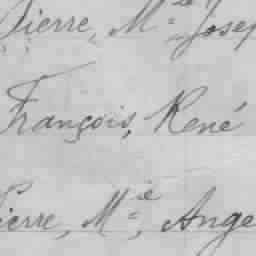 Pierre, Mie Josep
François, René
Pierre, Mie, Ange